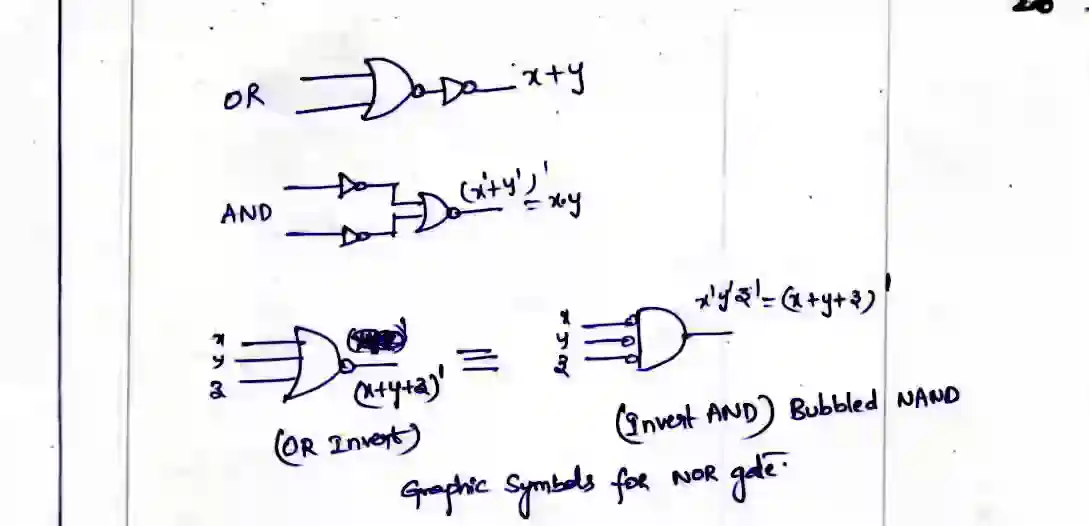 OR x+y
AND (x'+y')' = x.y
x'y'z' = (x+y+z)'
x
y
z
(x+y+z)'
≡
x
y
z
(OR Invert)
(Invert AND) Bubbled NAND
Graphic Symbols for NOR gate.